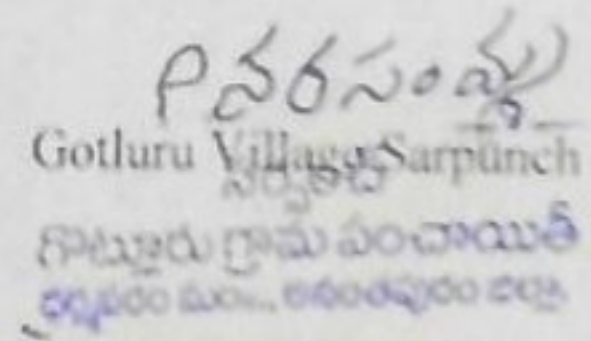 P నరసింహ
Gotluru Village Sarpunch
సర్పంచ్
గొట్లూరు గ్రామ పంచాయితీ
ధర్మవరం మం., అనంతపురం జిల్లా